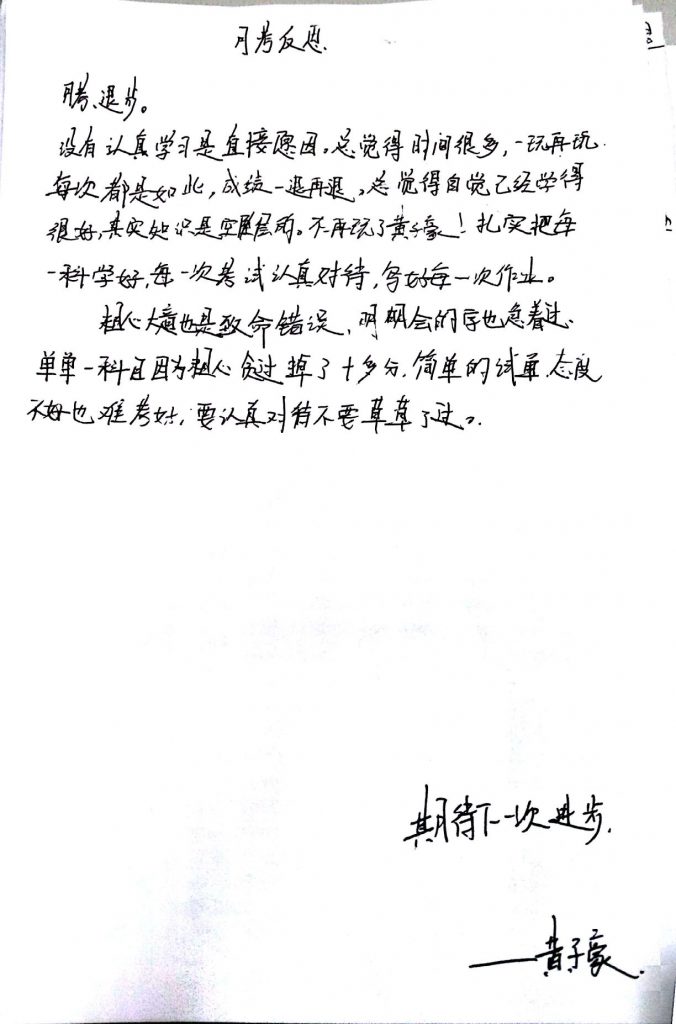 月考反思
月考退步。
没有认真学习是直接愿因。总觉得时间很多,一玩再玩.
每次都是如此,成绩一退再退。总觉得自觉已经学得
很好,其实知识是空中层的。不再玩了黄子豪!扎实把每
一科学好,每一次考试认真对待,写好每一次作业。
粗心大意也是致命错误,明明会的字也急着过.
单单一科且因为粗心会过掉了十多分.简单的试单,态度
不好也难考好,要认真对待不要草草了过。
期待下一次进步.
——黄子豪.